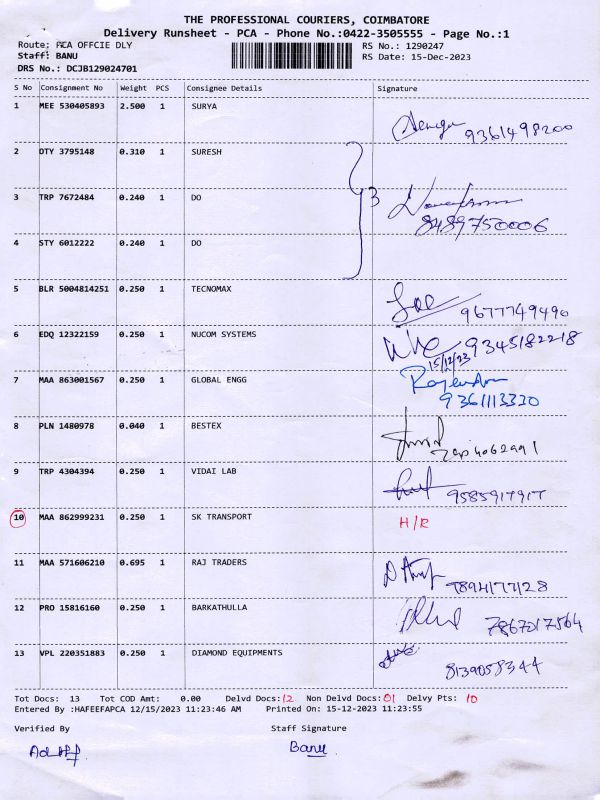 THE PROFESSIONAL COURIERS, COIMBATORE
Delivery Runsheet - PCA - Phone No.:0422-3505555 - Page No.:1
Route: PCA OFFCIE DLY RS No.: 1290247
Staff: BANU RS Date: 15-Dec-2023
DRS No.: DCJB129024701
S No Consignment No Weight PCS Consignee Details Signature
1 MEE 530405893 2.500 1 SURYA 9361498200
2 DTY 3795148 0.310 1 SURESH
3 TRP 7672484 0.240 1 DO 3 8489750006
4 STY 6012222 0.240 1 DO
5 BLR 5004814251 0.250 1 TECNOMAX 9677749490
6 EDQ 12322159 0.250 1 NUCOM SYSTEMS 9345182218
15/12/23
7 MAA 863001567 0.250 1 GLOBAL ENGG Rajendran
9361113320
8 PLN 1480978 0.040 1 BESTEX
9 TRP 4304394 0.250 1 VIDAI LAB 9585917917
10 MAA 862999231 0.250 1 SK TRANSPORT H/R
11 MAA 571606210 0.695 1 RAJ TRADERS 7894177128
12 PRO 15816160 0.250 1 BARKATHULLA 7867017564
13 VPL 220351883 0.250 1 DIAMOND EQUIPMENTS 8139058344
Tot Docs: 13 Tot COD Amt: 0.00 Delvd Docs:12 Non Delvd Docs:01 Delvy Pts: 10
Entered By :HAFEEFAPCA 12/15/2023 11:23:46 AM Printed On: 15-12-2023 11:23:55
Verified By Staff Signature
Banu